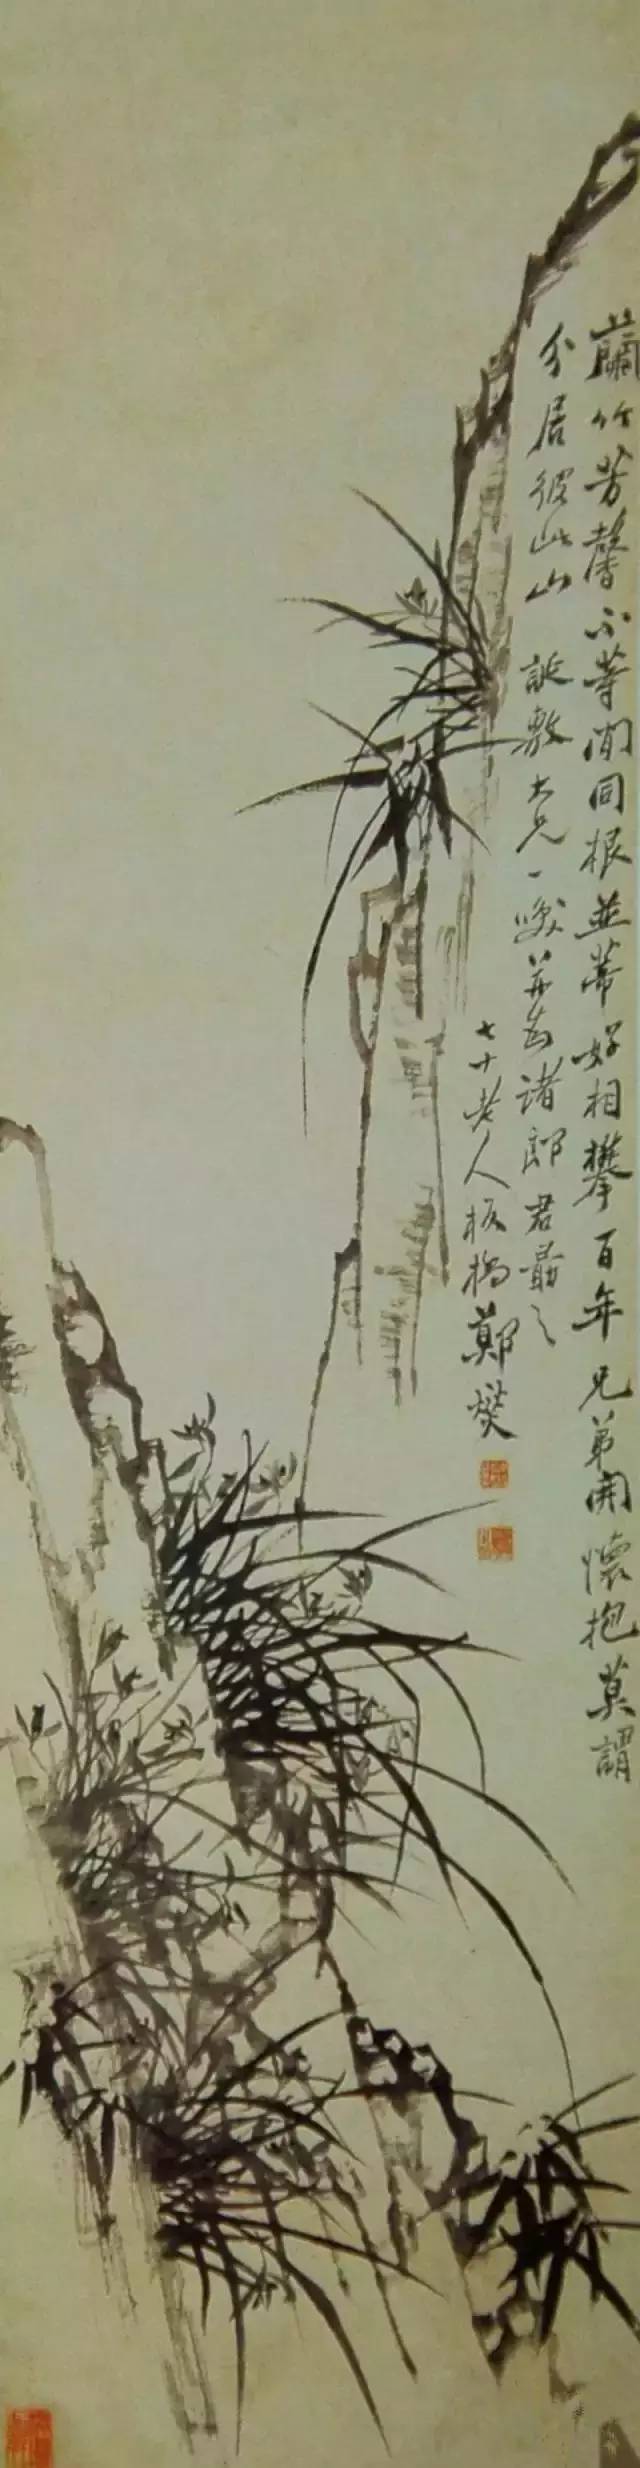 蘭竹芳馨不等閒同根並蒂好相攀百年兄弟開懷抱莫謂
分居彼此山 誕敷大兄一笑並為諸郎君勗之
七十老人板橋鄭燮